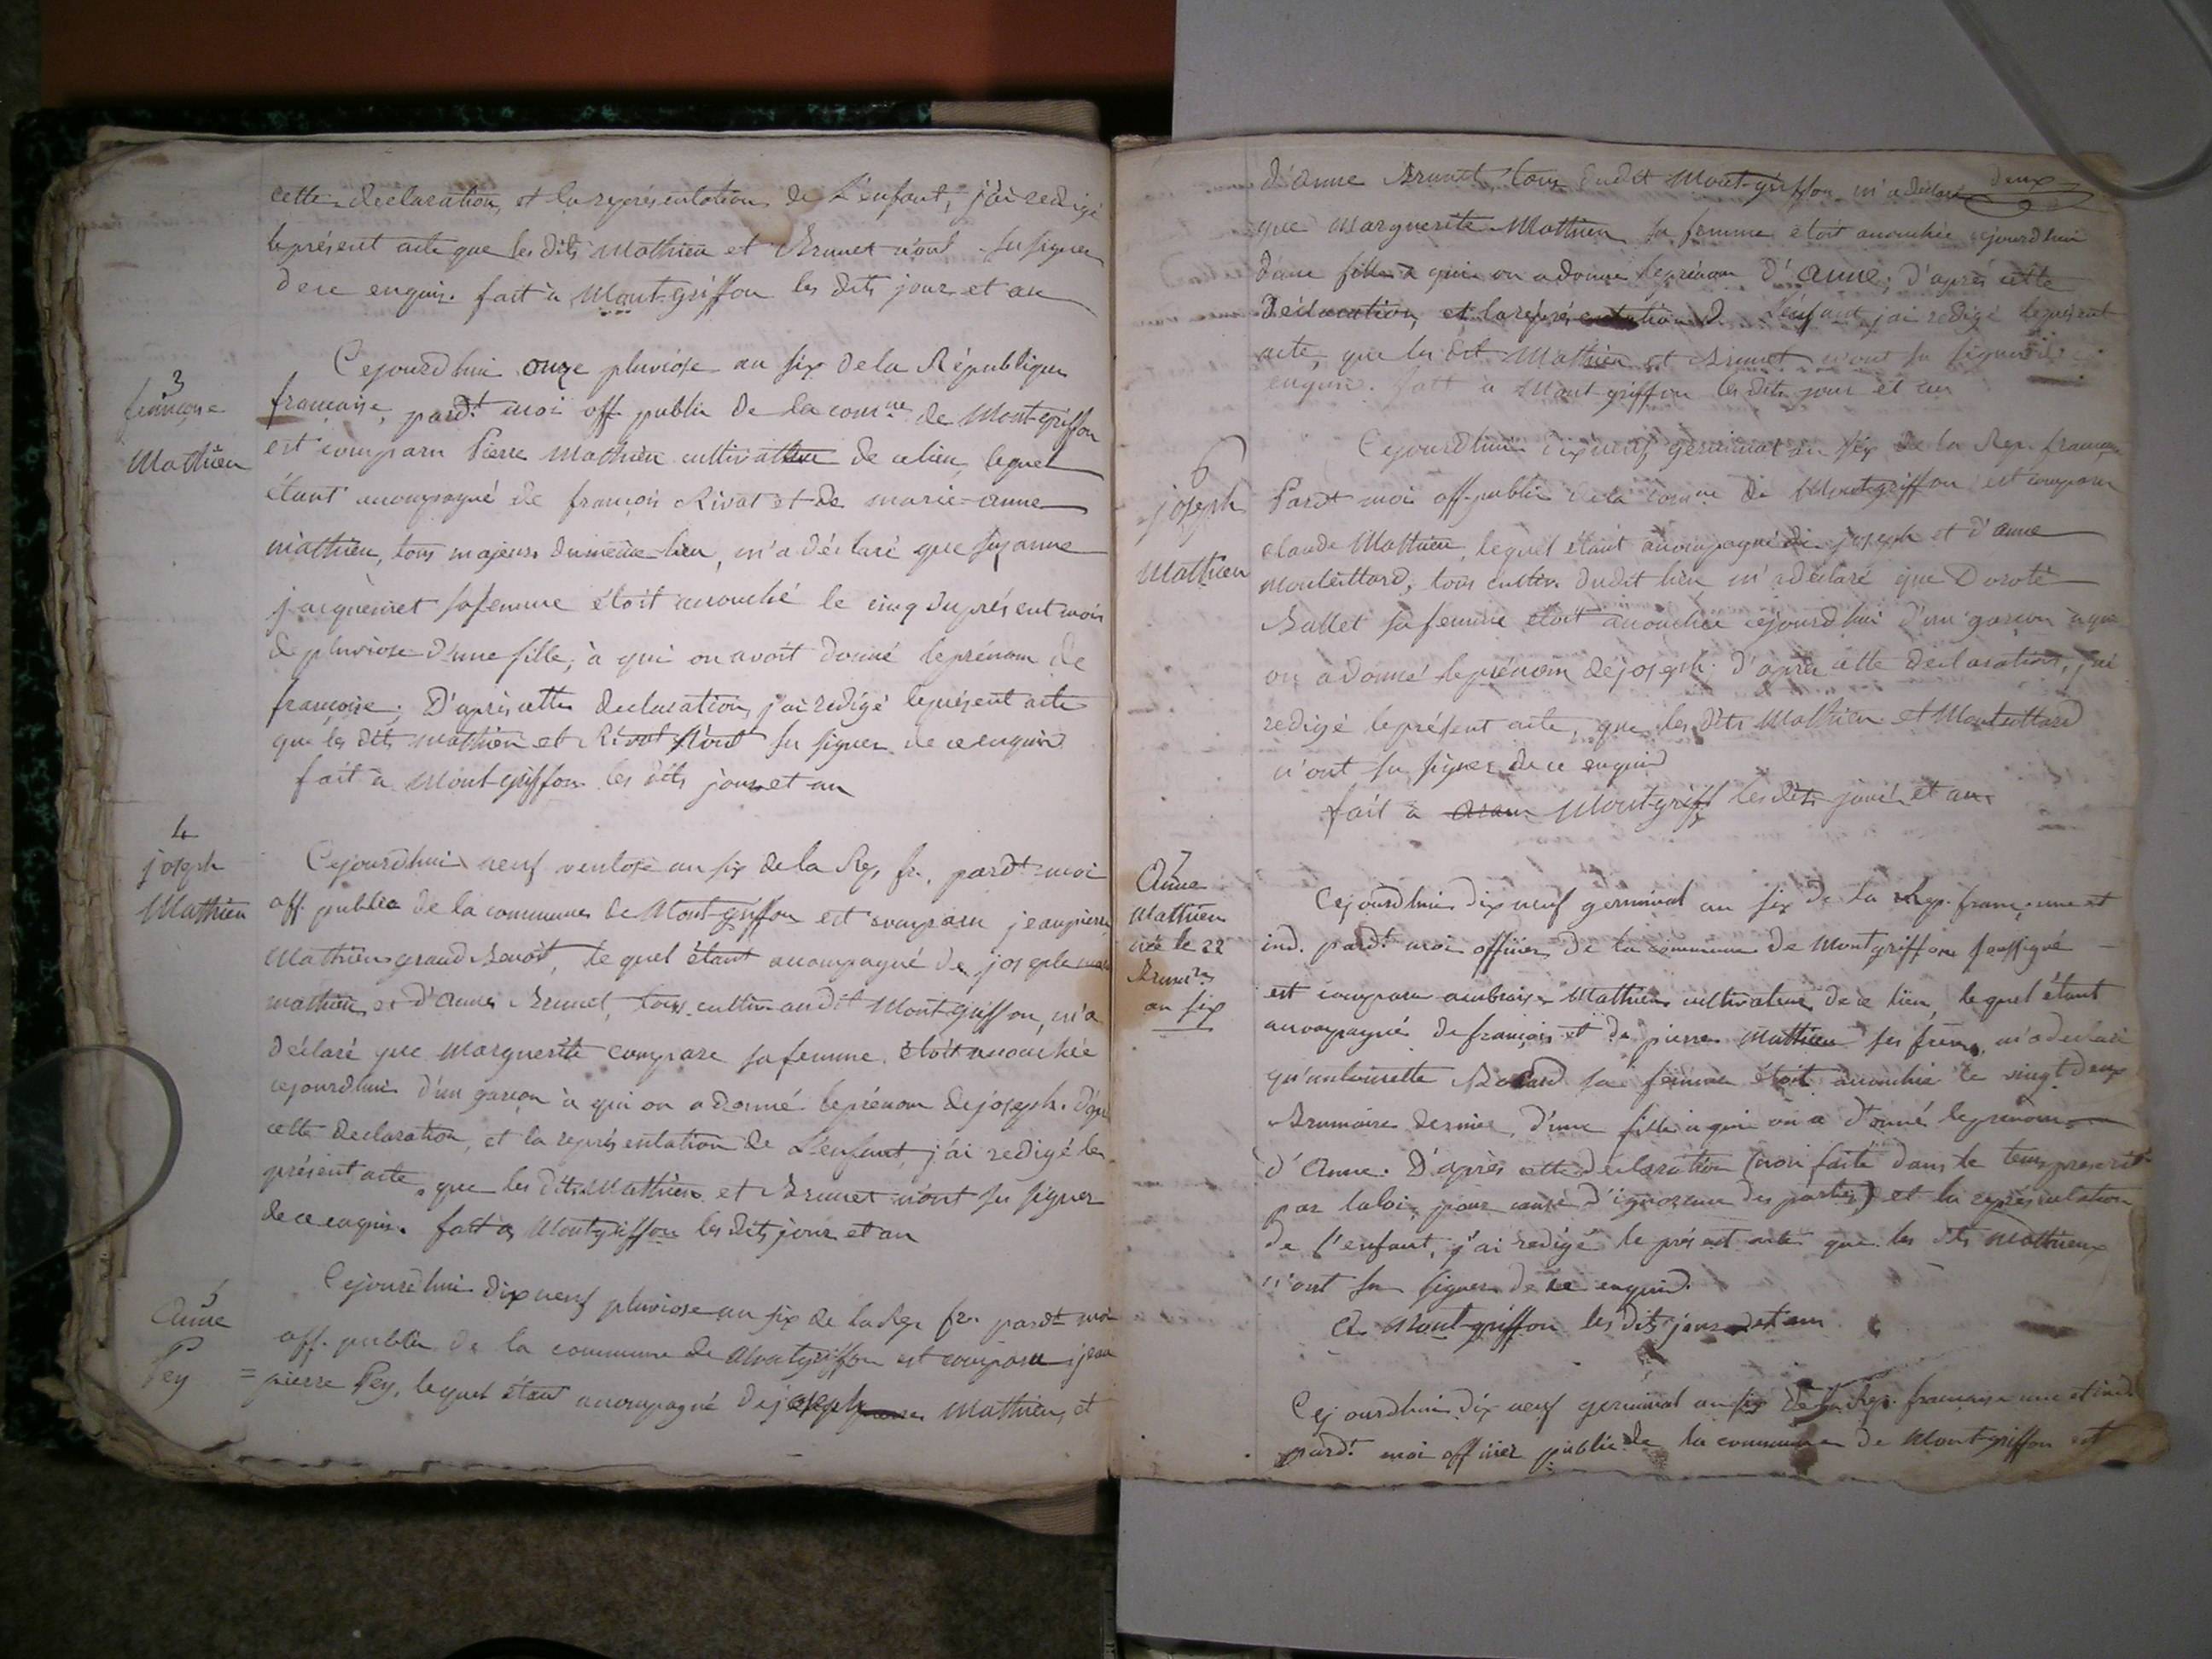 cette declaration, et la représentation de L'enfant, j'ai redigé
le présent acte que les dits Mathieu et Brunet n'ont su signer
de ce enquis. fait à Mont-griffon les dits jour et an
3
françoise
Mathieu
Cejourdhui onze pluviose an six de la République
française, pardt moi off. public de la comne de Mont-griffon
est comparu Pierre Mathieu cultivateur de ce lieu, lequel
étant accompagné de françois Rivat et de marie-anne
mathieu, tous majeurs du même lieu, m'a déclaré que suzanne
jacquemet sa femme étoit accouché le cinq du présent mois
de pluviose d'une fille, à qui on avoit donné le prénom de
françoise. D'après cette declaration, j'ai redigé le présent acte
que les dits mathieu et Rivat n'ont su signer de ce enquis
fait à Mont-griffon les dits jour et an
4
joseph
Mathieu
Cejourdhui neuf ventose an six de la Rep. fr. pardt moi
off. public de la commune de Mont-griffon est comparu jeanpierre
Mathieu grand Benoît, le quel étant accompagné de joseph
mathieu et d'anne Brunet, tous cultiv. au dit Mont-griffon, m'a
déclaré que Marguerite compare sa femme étoit accouchée
cejourdhui d'un garçon à qui on a donné le prénom de joseph. d'après
cette declaration, et la représentation de L'enfant, j'ai redigé le
présent acte, que les dits Mathieu et Brunet n'ont su signer
de ce enquis. fait à Montgriffon les dits jour et an
5
Anne
Pey
Cejourdhui dixneuf pluviose an six de la Rep. fr. pardt moi
off. public de la commune de Montgriffon est comparu jean
= pierre Pey, lequel étant accompagné de joseph Mathieu, et
deux
d'anne Brunet, tous dudit Mont-griffon m'a déclaré
que Marguerite Mathieu sa femme étoit accouchée cejourdhui
d'une fille à qui on a donné le prénom d'anne; d'après cette
déclaration, et la représentation de l'enfant j'ai redigé le présent
acte, que les dit Mathieu et Brunet n'ont su signer de ce
enquis. fait à Mont-griffon les dits jour et an
6
joseph
Mathieu
Cejourdhui dixneuf germinal an six de la Rep. française
Pardt moi off. public de la comne de Montgriffon est comparu
claude Mathieu, lequel étant accompagné de joseph et d'anne
Montuittard, tous cultiv. dudit lieu m'a déclaré que Doroté
Ballet sa femme étoit accouchée cejourdhui d'un garçon à qui
on a donné le prénom de joseph; d'après cette declaration, j'ai
redigé le présent acte, que les dits Mathieu et Montuittard
n'ont su signer de ce enquis
fait à Montgriff les dits jour et an
7
Anne
Mathieu
née le 22
Brumre
an six
Cejourdhui dixneuf germinal an six de la Rep. franç. une et
ind. pardt moi officier de la commune de Montgriffon soussigné
est comparu ambroise Mathieu cultivateur de ce lieu, lequel étant
accompagné de françois et de pierre Mathieu ses frères, m'a déclaré
qu'antoinette sa femme étoit accouchée le vingt deux
Brumaire dernier, d'une fille à qui on a donné le prénom
d'Anne. D'après cette declaration (non faite dans le tems prescrit
par la loi, pour cause d'ignorance des parties) et la représentation
de l'enfant, j'ai redigé le présent acte que les dits Mathieux
n'ont su signer de ce enquis.
A Mont-griffon les dits jour et an
Cejourdhui dix neuf germinal an six de la Rep. française une et ind.
pardt moi officier public de la commune de Mont-griffon est